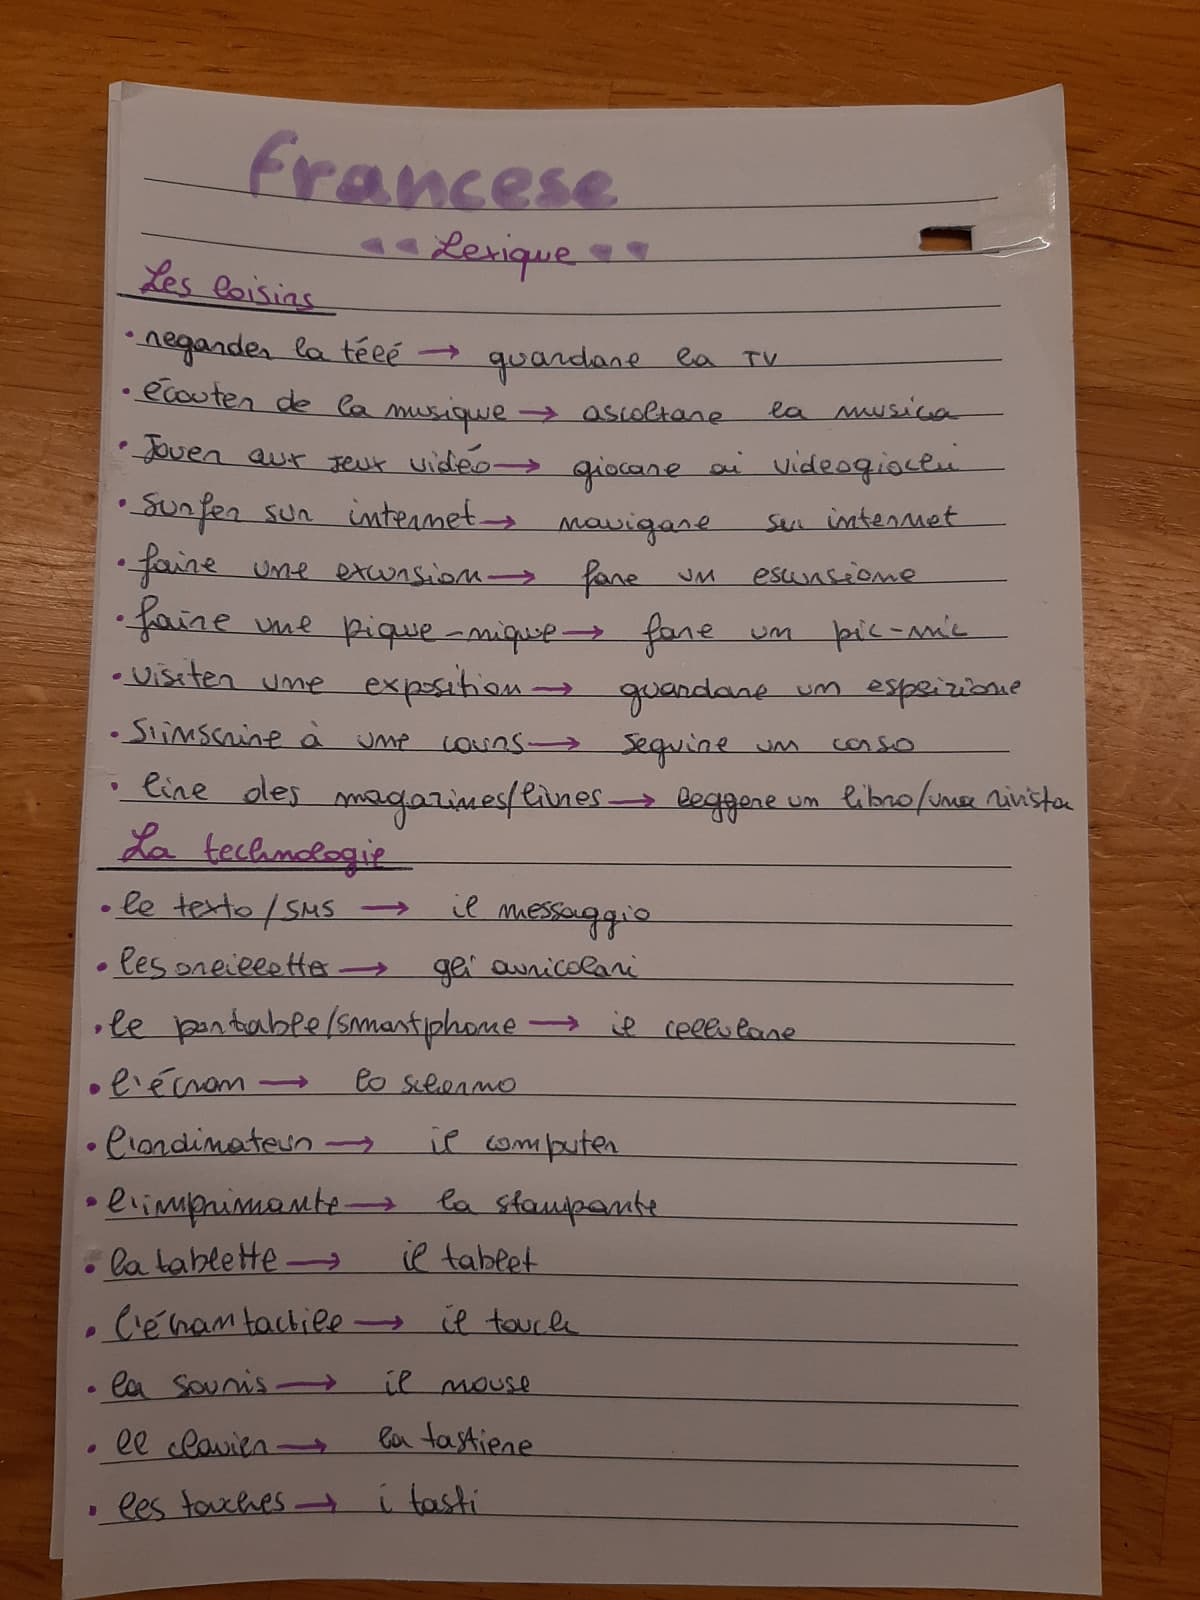 Francese
Lexique
Les loisirs
• regarder la télé → guardare la TV
• écouter de la musique → ascoltare la musica
• Jouer aux jeux vidéo → giocare ai videogiochi
• surfer sur internet → navigare su internet
• faire une excursion → fare un escursione
• faire une pique-nique → fare un pic-nic
• visiter une exposition → guardare un espsizione
• S'inscrire à une cours → seguire un corso
• lire des magazines/livres → leggere un libro/una rivista
La technologie
• le texto/SMS → il messaggio
• les oreillette → gli auricolari
• le portable/smartphone → il cellulare
• l'écran → lo schermo
• l'ordinateur → il computer
• l'imprimante → la stampante
• la tablette → il tablet
• l'écran tactile → il touch
• la souris → il mouse
• le clavier → la tastiere
• les touches → i tasti